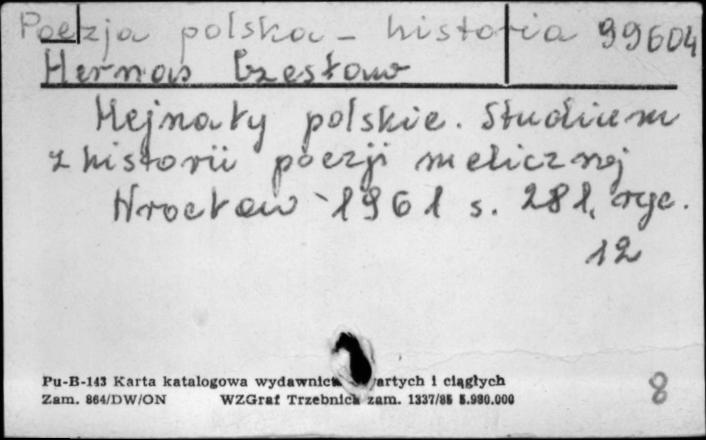 Poezja polska - historia 99604
Hernas Czesław
Hejnały polskie. Studium
z historii poezji melicznej
Wrocław 1961 s. 281, ryc.
12
Pu-B-143 Karta katalogowa wydawnictw zwartych i ciągłych
Zam. 864/DW/ON WZGraf Trzebnica zam. 1337/85 5.980.000
8